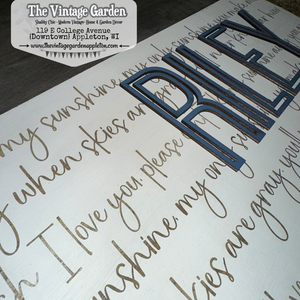 The Vintage Garden
Shabby Chic · Modern Vintage · Home & Garden Decor
119 E College Avenue
(Downtown) Appleton, WI
www.thevintagegardenappleton.com
RILEY
my sunshine, my on
when skies are gray
I love you, please
sunshine, my only su
skies are gray. you'll